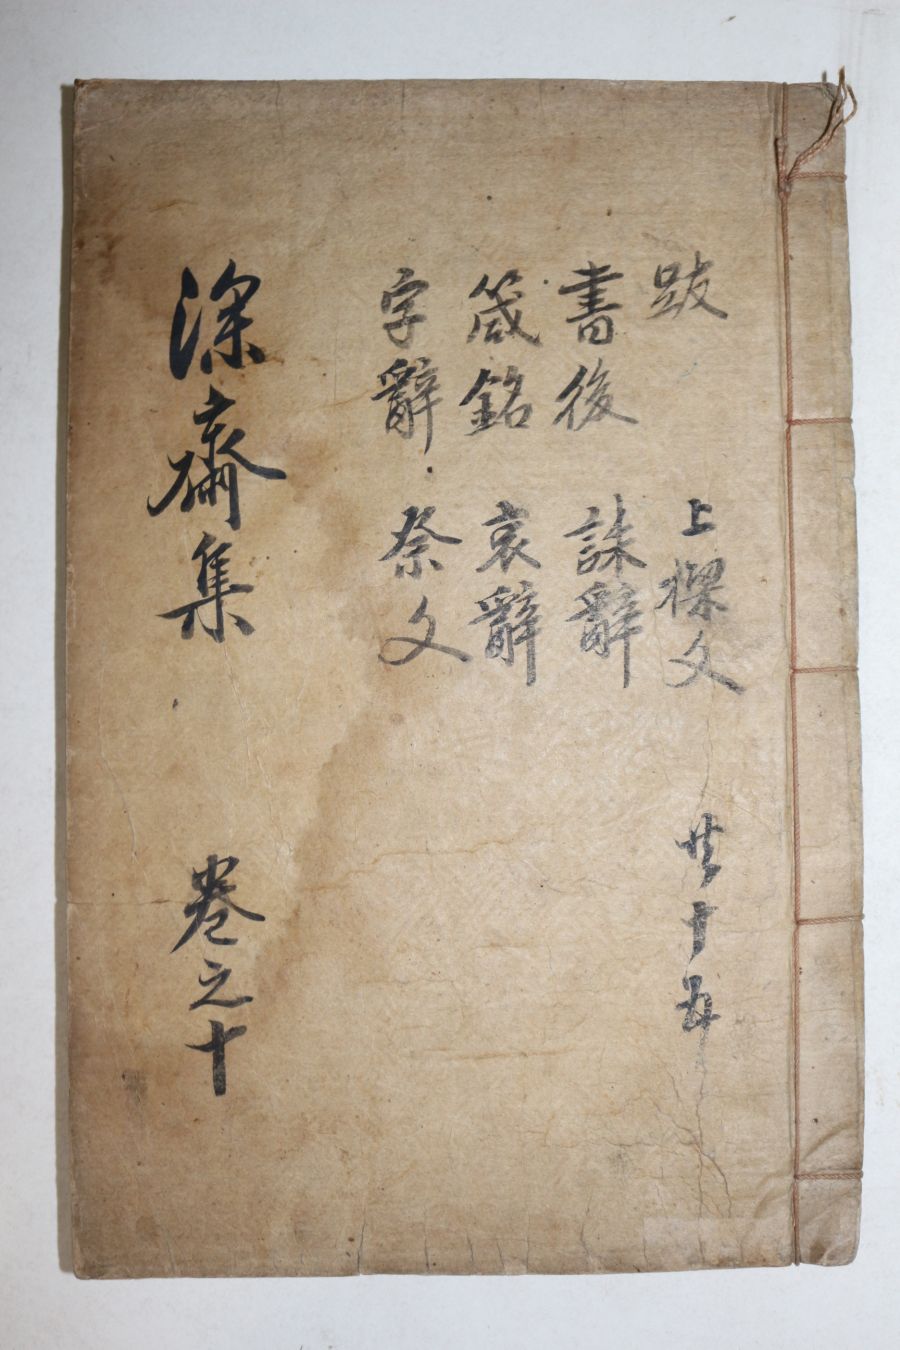 跋 上樑文 共十五
書後 誄辭
箴銘 哀辭
字辭 祭文
深齋集 卷之十